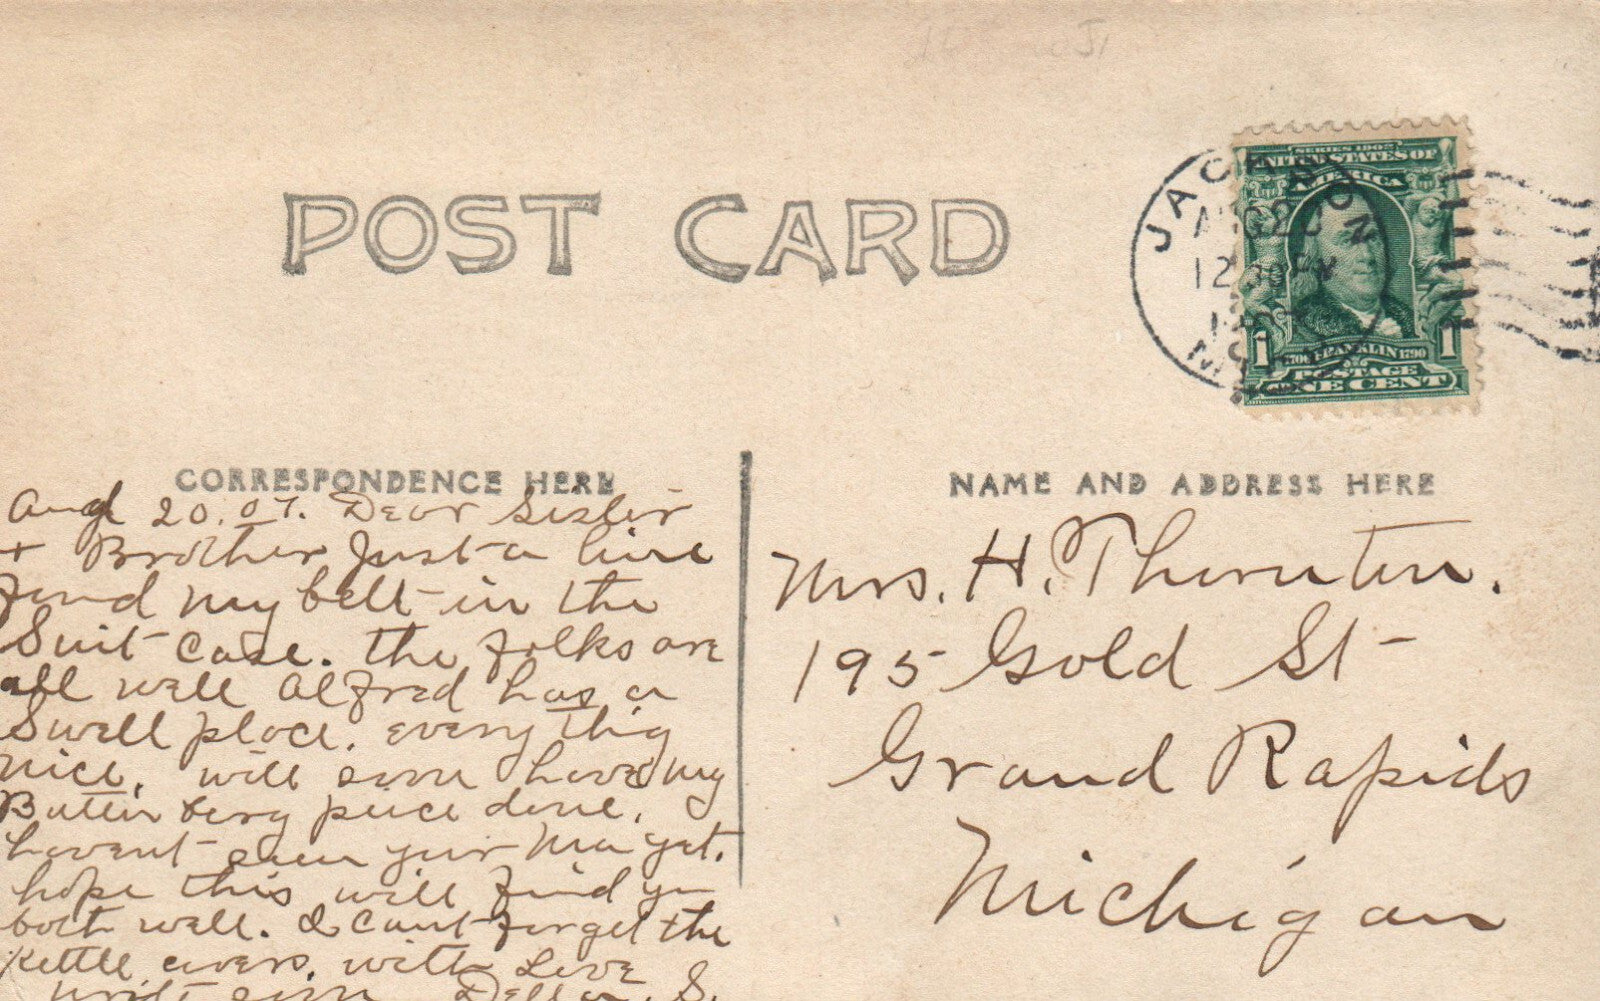 POST CARD
JACKSON
AUG 20
12 30 PM
1907
MICH
SERIES 1902
UNITED STATES OF
AMERICA
1706 FRANKLIN 1790
1 1
POSTAGE
ONE CENT
CORRESPONDENCE HERE
NAME AND ADDRESS HERE
Aug 20.07. Dear Sister
+ Brother Just a line
find my belt in the
Suit Case. the folks are
all well Alfred has a
Swell place. every thig
nice. will soon have my
Battenberg piece done.
havent seen your Ma yet.
hope this will find you
both well. I cant forget the
Kettle covers. with Love
write soon Della. S.
Mrs. H. Thornton.
195 Gold St
Grand Rapids
Michigan